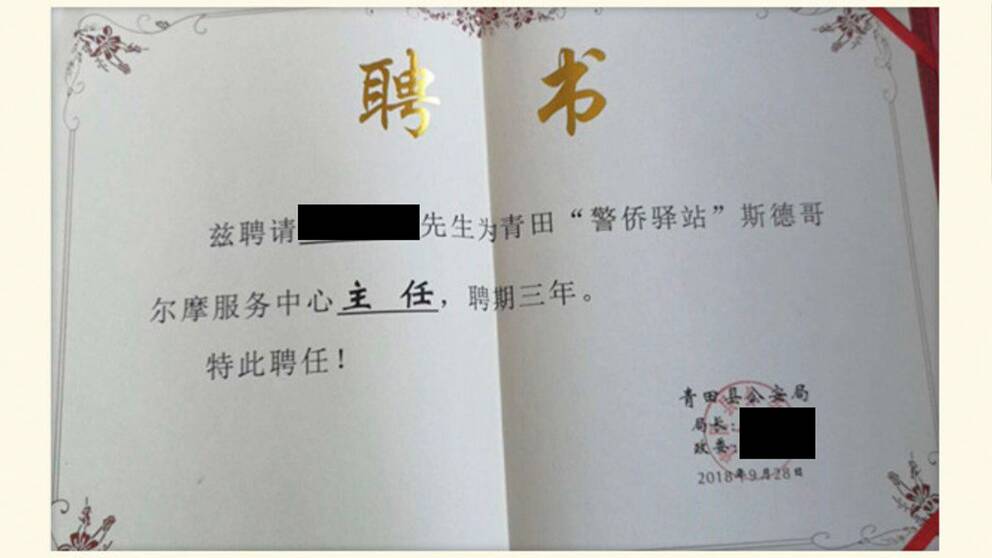 聘书
兹聘请 先生为青田“警侨驿站”斯德哥
尔摩服务中心主任，聘期三年。
特此聘任！
青田县公安局
局长：
政委：
2018年9月28日